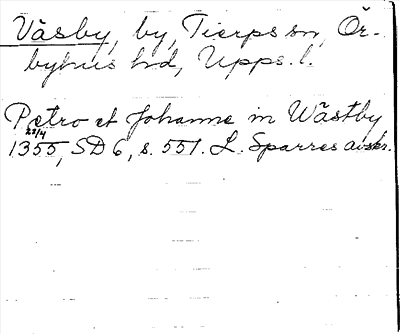 Väsby, by, Tierps sn, Ör-
byhus hd, Upps. l.
Petro et Johanne in Wästby
25/4
1355, SD 6, s. 551. L. Sparres avskr.